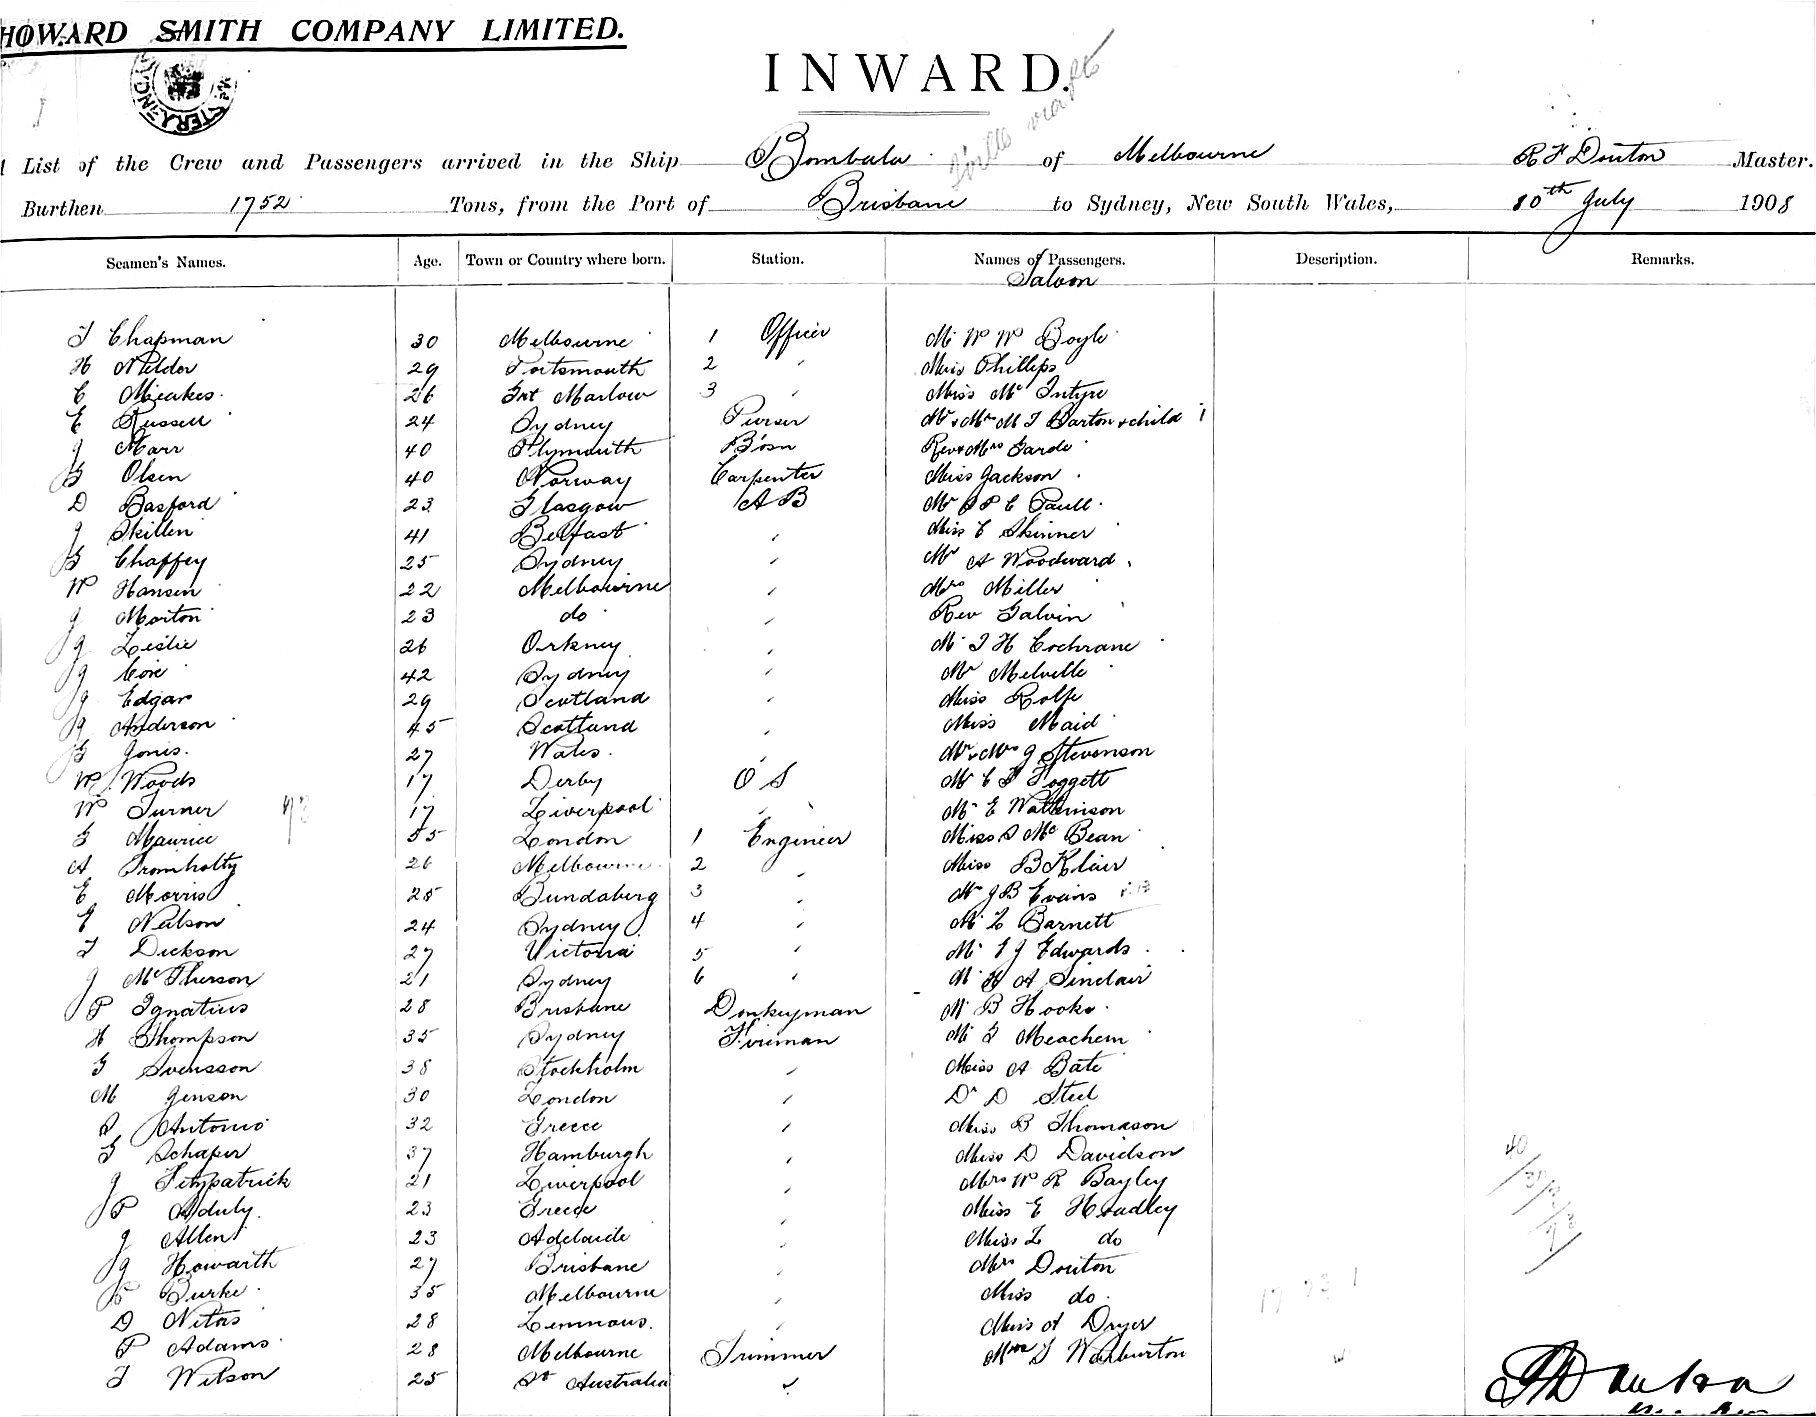 HOWARD SMITH COMPANY LIMITED.
INWARD.
List of the Crew and Passengers arrived in the Ship Bombala of Melbourne R F Douton Master.
Burthen 1752 Tons, from the Port of Brisbane to Sydney, New South Wales, 10th July 1908
Seamen's Names. Age. Town or Country where born. Station. Names of Passengers. Description. Remarks.
Saloon
T Chapman 30 Melbourne 1 Officer Mr W W Boyle
H 29 Portsmouth 2 Miss Phillips
C Meakes 26 Grt Marlow 3 Miss Mc Intyre
E Russell 24 Sydney Purser Mr & Mrs M T Barton & child 1
J Marr 40 Plymouth B'osn Rev & Mrs Garde
G Olsen 40 Norway Carpenter Miss Jackson
D Basford 23 Glasgow A B Mr P C Paull
J Skillen 41 Belfast Miss C Skinner
G Chaffey 25 Sydney Mr A Woodward
W Hansen 22 Melbourne Mrs Miller
J Morton 23 do Rev Galvin
J Leslie 26 Orkney Mr T H Cochrane
J Coxe 42 Sydney Mr Melville
J Edgar 29 Scotland Miss Rolfe
J Anderson 45 Scotland Miss Maid
G Jones 27 Wales Mr & Mrs J Stevenson
W Woods 17 Derby O S Mr C F Foggett
W Turner 17 Liverpool Mr E Watkinson
G Maurice 55 London 1 Engineer Miss S Mc Bean
A Tromholtz 26 Melbourne 2 Miss B Klair
E Morris 25 Bundaberg 3 Mr J B Evans
E Neilson 24 Sydney 4 Mr L Barnett
T Dickson 27 Victoria 5 Mr T J Edwards
J McPherson 21 Sydney 6 Mr H A Sinclair
P Ignatius 28 Brisbane Donkeyman Mr B Hooke
H Thompson 35 Sydney Fireman Mr S Meachem
G Svensson 38 Stockholm Miss A Bate
M Jenson 30 London Dr D Steel
S Antonio 32 Greece Miss B Thomason
G Schaper 37 Hamburgh Miss D Davidson
J Fitzpatrick 21 Liverpool Mrs W R Bayley
P Aduly 23 Greece Miss E Headley
J Allen 23 Adelaide Miss L do
J Howarth 27 Brisbane Mrs Douton
P Burke 35 Melbourne Miss do
D Nitas 28 Lemnous Miss A Dryer
P Adams 28 Melbourne Trimmer Mrs T Warburton
T Wilson 25 Sth Australia